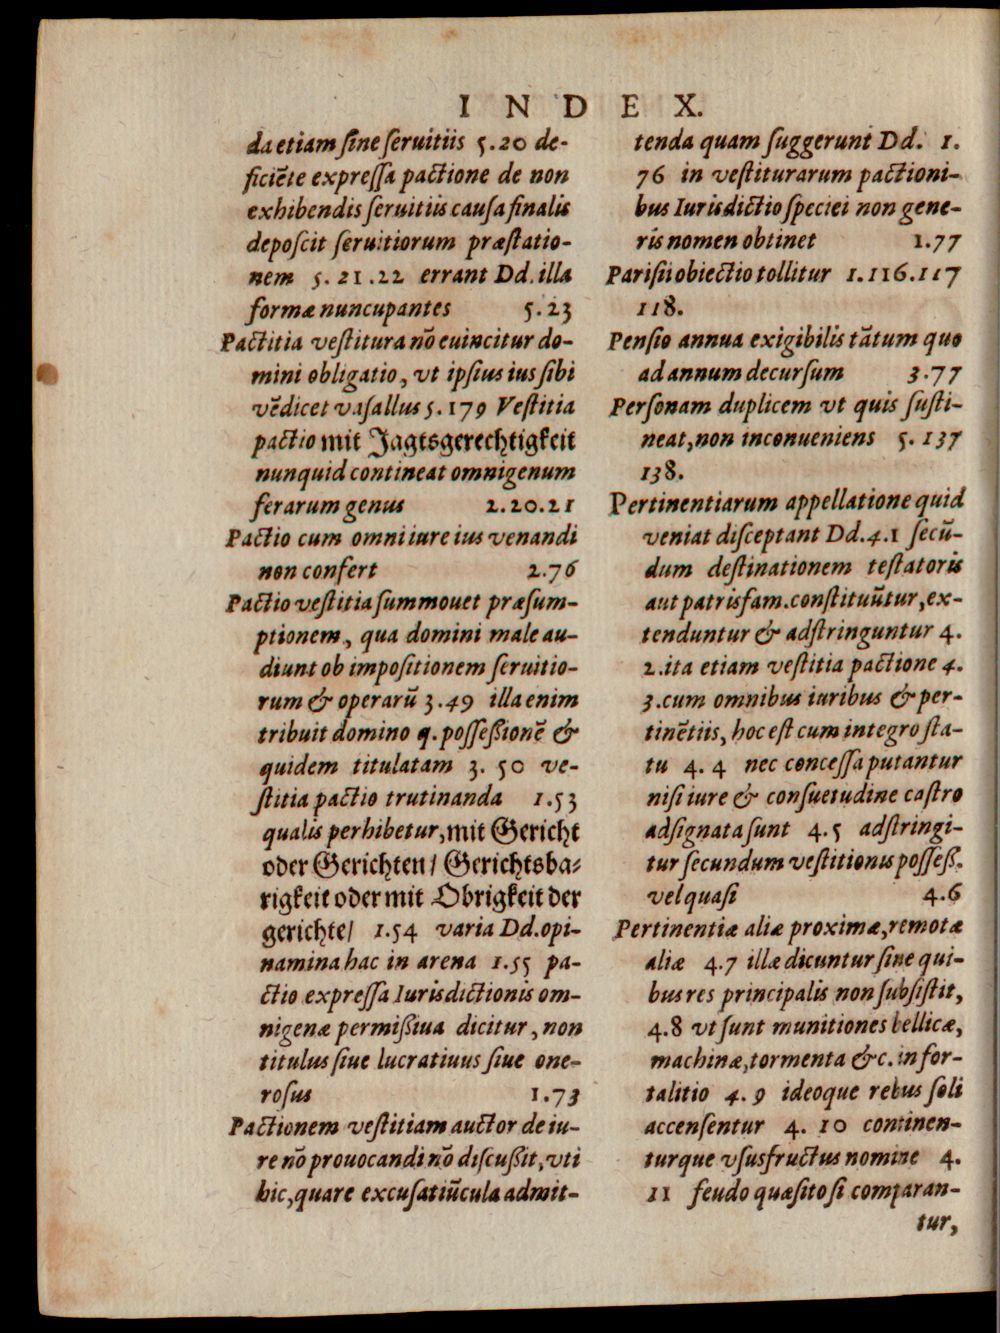 INDEX.
da etiam ſine ſeruitiis 5.20 de-
ficiẽte expreſſa pactione de non
exhibendis ſeruitiis cauſa finalis
depoſcit ſeruitiorum præſtatio-
nem 5. 21.22 errant Dd. illa
formæ nuncupantes 5.23
Pactitia veſtitura nõ euincitur do-
mini obligatio, vt ipſius ius ſibi
vẽdicet vaſallus 5.179 Veſtitia
pactio mit Jagtsgerechtigkeit
nunquid contineat omnigenum
ferarum genus 2.20.21
Pactio cum omni iure ius venandi
non confert 2.76
Pactio veſtitia ſummouet præſum-
ptionem, qua domini male au-
diunt ob impoſitionem ſeruitio-
rum & operarũ 3.49 illa enim
tribuit domino q. poſſeßionẽ &
quidem titulatam 3. 50 ve-
ſtitia pactio trutinanda 1.53
qualis perhibetur, mit Gericht
oder Gerichten/ Gerichtsba-
rigkeit oder mit Obrigkeit der
gerichte/ 1.54 varia Dd. opi-
namina hac in arena 1.55 pa-
ctio expreſſa Iurisdictionis om-
nigenæ permißiua dicitur, non
titulus ſiue lucratiuus ſiue one-
roſus 1.73
Pactionem veſtitiam auctor de iu-
re nõ prouocandi nõ diſcußit, vti
hic, quare excuſatiũcula admit-
tenda quam ſuggerunt Dd. 1.
76 in veſtiturarum pactioni-
bus Iurisdictio ſpeciei non gene-
ris nomen obtinet 1.77
Pariſii obiectio tollitur 1.116.117
118.
Penſio annua exigibilis tãtum quo
ad annum decurſum 3.77
Perſonam duplicem vt quis ſuſti-
neat, non inconueniens 5. 137
138.
Pertinentiarum appellatione quid
veniat diſceptant Dd. 4.1 ſecũ-
dum deſtinationem teſtatoris
aut patrisfam. conſtituũtur, ex-
tenduntur & adſtringuntur 4.
2. ita etiam veſtitia pactione 4.
3. cum omnibus iuribus & per-
tinẽtiis, hoc eſt cum integro ſta-
tu 4. 4 nec conceſſa putantur
niſi iure & conſuetudine caſtro
adſignata ſunt 4.5 adſtringi-
tur ſecundum veſtitionis poſſeß.
vel quaſi 4.6
Pertinentiæ aliæ proximæ, remotæ
aliæ 4.7 illæ dicuntur ſine qui-
bus res principalis non ſubſiſtit,
4.8 vt ſunt munitiones bellicæ,
machinæ, tormenta &c. in for-
talitio 4. 9 ideoque rebus ſoli
accenſentur 4. 10 continen-
turque vſusfructus nomine 4.
11 feudo quæſito ſi comparan-
tur,